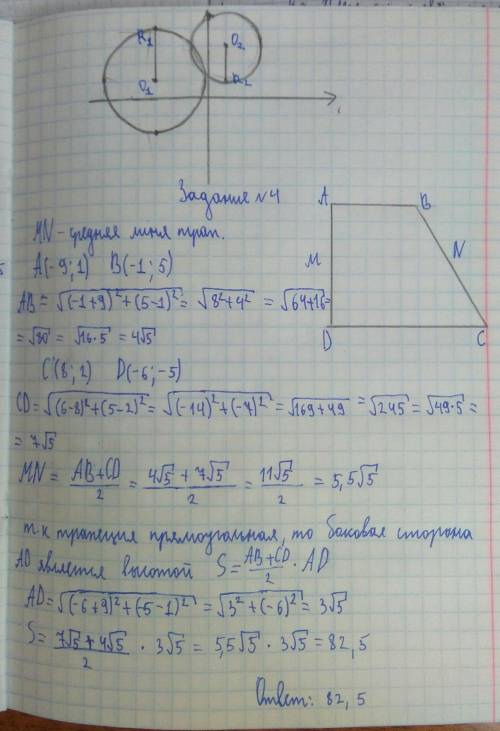 R₁
O₂
O₁
R₂
Задание №4
A
B
MN - средняя линия трап.
M
N
A(-9;1) B(-1;5)
AB = √(-1+9)²+(5-1)² = √8²+4² = √64+16 =
= √80 = √16·5 = 4√5
D
C
C(8;2) D(-6;-5)
CD = √(6-8)²+(5-2)² = √(-14)²+(-7)² = √169+49 = √245 = √49·5 =
= 7√5
MN = AB+CD/2 = 4√5+7√5/2 = 11√5/2 = 5,5√5
т.к трапеция прямоугольная, то боковая сторона
AD является высотой S = AB+CD/2 · AD
AD = √(-6+9)²+(5-1)² = √3²+(-6)² = 3√5
S = 7√5+4√5/2 · 3√5 = 5,5√5 · 3√5 = 82,5
Ответ: 82,5